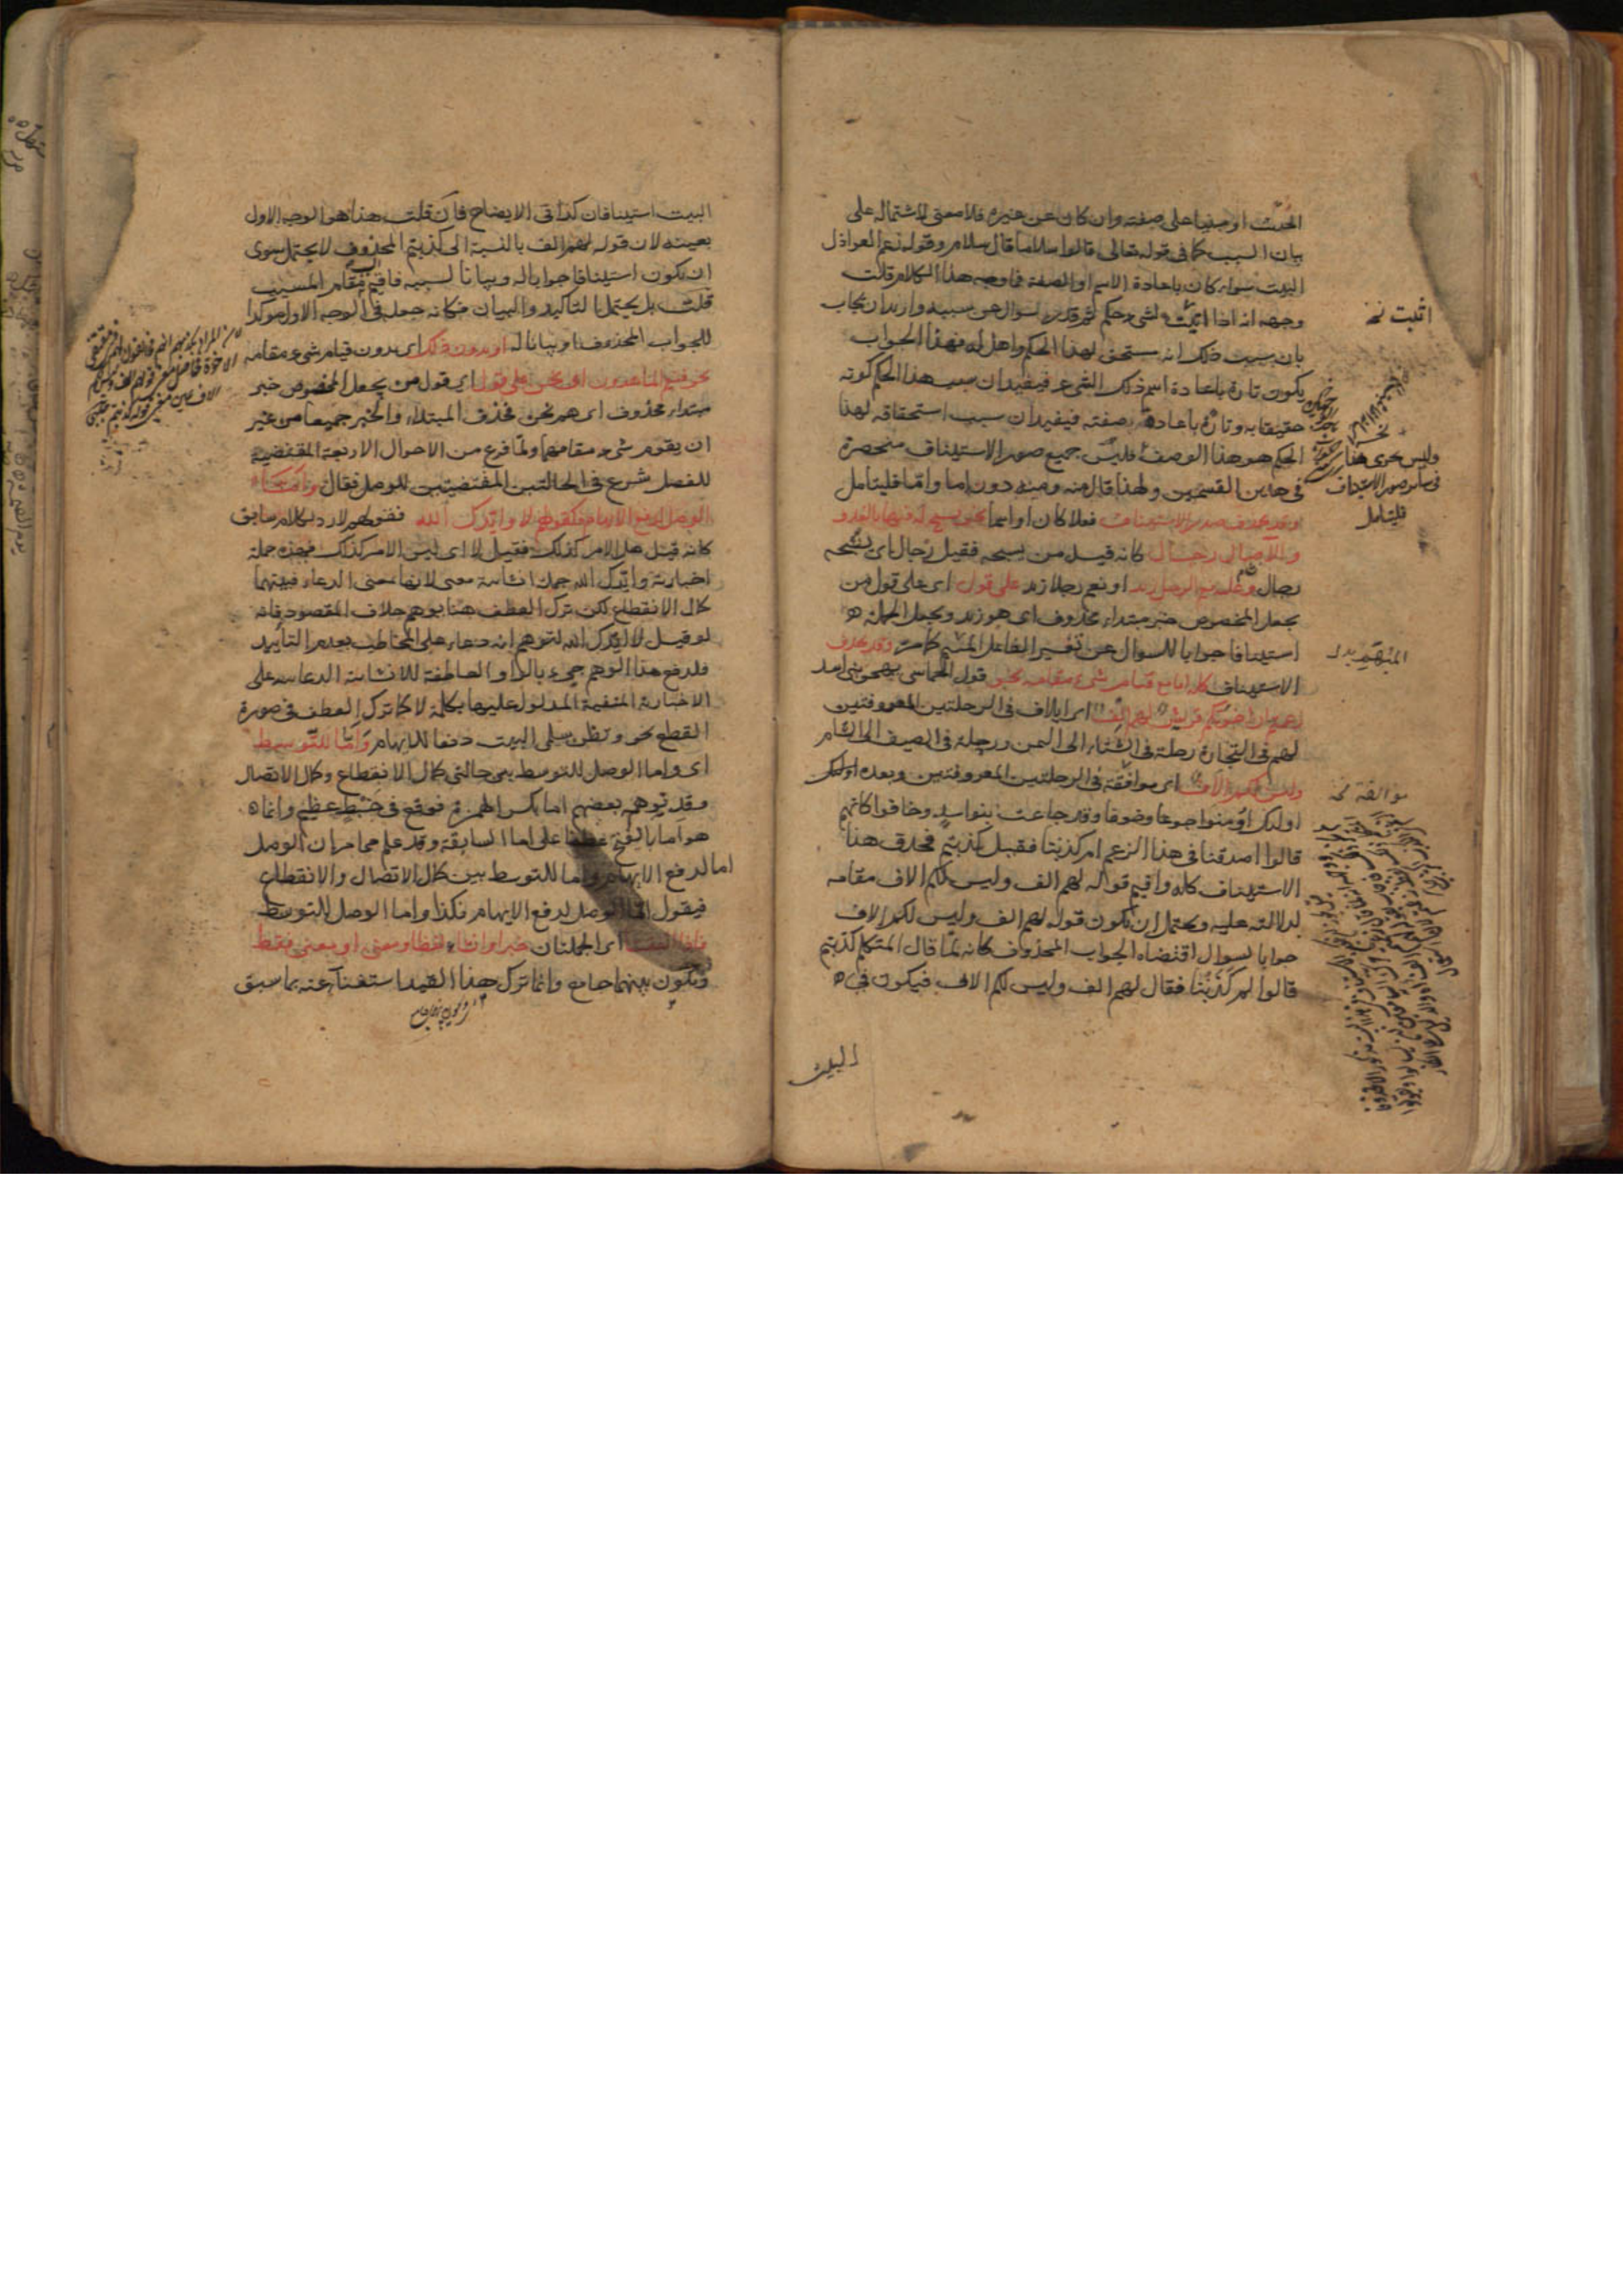 الحدث او مبنيا على صفته وان كان عن غيره فلا معنى لاشتماله على
بيان السبب كما فى قوله تعالى قالوا سلاما قال سلام وقوله زعم العواذل
البيت سواء كان باعادة الاسم او الصفة فما وجه هذا الكلام قلت
وجهه انه اذا اثبت لشئ حكم ثم قدر سوال عن سببه واريد ان يجاب
بان سبب ذلك انه مستحق لهذا الحكم واهل له فهذا الجواب
يكون تارة باعادة اسم ذلك الشئ فيفيد ان سبب هذا الحكم كونه
حقيقا به وتارة باعادة صفته فيفيد ان سبب استحقاقه لهذا
الحكم هو هذا الوصف فليس جميع صور الاستيناف منحصرة
فى هذين القسمين ولهذا قال منه ومنه دون اما واما فليتامل
وقد يحذف صدر الاستيناف فعلا كان او اسما نحو يسبح له فيها بالغدو
والاصال رجال كانه قيل من يسبحه فقيل رجال اى يسبحه
رجال وعليه نعم الرجل زيد او نعم رجلا زيد على قول اى على قول من
يجعل المخصوص خبر مبتداء محذوف اى هو زيد ويجعل الجملة
استينافا جوابا للسوال عن تفسير الفاعل المبهم كما مر وقد يحذف
الاستيناف كله اما مع قيام شئ مقامه نحو قول الحماسى يهجو بنى اسد
زعمتم ان اخوتكم قريش لهم الف اى ايلاف فى الرحلتين المعروفتين
لهم فى التجارة رحلة فى الشتاء الى اليمن ورحلة فى الصيف الى الشام
وليس لكم الاف اى موافقة فى الرحلتين المعروفتين وبعده اولئك
اولئك اومنوا جوعا وخوفا وقد جاعت بنو اسد وخافوا كانهم
قالوا اصدقنا فى هذا الزعم ام كذبنا فقيل كذبتم فحذف هذا
الاستيناف كله واقيم قوله لهم الف وليس لكم الاف مقامه
لدلالته عليه ويحتمل ان يكون قوله لهم الف وليس لكم الاف
جوابا لسوال اقتضاه الجواب المحذوف كانه لما قال المتكلم كذبتم
قالوا لم كذبنا فقال لهم الف وليس لكم الاف فيكون فى
البيت
اثبت نخ
وليس يجرى هذا
فى سائر صور الاستيناف
فليتامل
المبهم بدل
موالفة نخ
البيت استينافان كذا فى الايضاح فان قلت هذا هو الوجه الاول
بعينه لان قوله لهم الف بالنسبة الى كذبتم المحذوف لا يحتمل سوى
ان يكون استينافا جوابا له وبيانا لسببه فاقيم السبب مقام المسبب
قلت بل يحتمل التاكيد والبيان فكانه جعله فى الوجه الاول موكدا
للجواب المحذوف او بيانا له او بدون ذلك اى بدون قيام شئ مقامه
نحو فنعم الماهدون اى نحن على قول اى قول من يجعل المخصوص خبر
مبتداء محذوف اى هم نحن فحذف المبتداء والخبر جميعا من غير
ان يقوم شئ مقامهما ولما فرغ من الاحوال الاربعة المقتضية
للفصل شرع فى الحالتين المقتضيتين للوصل فقال واما
الوصل لدفع الايهام فكقولهم لا وايدك الله فقولهم لا رد لكلام سابق
كانه قيل هل الامر كذلك فقيل لا اى ليس الامر كذلك فهذه جملة
اخبارية وايدك الله جملة انشائية معنى لانها بمعنى الدعاء فبينهما
كمال الانقطاع لكن ترك العطف هنا يوهم خلاف المقصود فانه
لو قيل لا ايدك الله لتوهم انه دعاء على المخاطب بعدم التاييد
فلدفع هذا الوهم جيء بالواو العاطفة للانشائية الدعائية على
الاخبارية المنفية المدلول عليها بكلمة لا كما ترك العطف فى صورة
القطع نحو وتظن سلمى البيت دفعا للايهام واما للتوسط
اى واما الوصل للتوسط بين حالتى كمال الانقطاع وكمال الاتصال
وقد توهم بعضهم اما بكسر الهمزة فوقع فى خبط عظيم وانما
هو اما بالفتح عطفا على اما السابقة وقد علم مما مر ان الوصل
اما لدفع الايهام واما للتوسط بين كمال الاتصال والانقطاع
فيقول اما الوصل لدفع الايهام فكذا واما الوصل للتوسط
فاذا اتفقتا اى الجملتان خبرا وانشاء لفظا ومعنى او بمعنى فقط
ويكون بينهما جامع وانما ترك هذا القيد استغناء عنه بما سبق